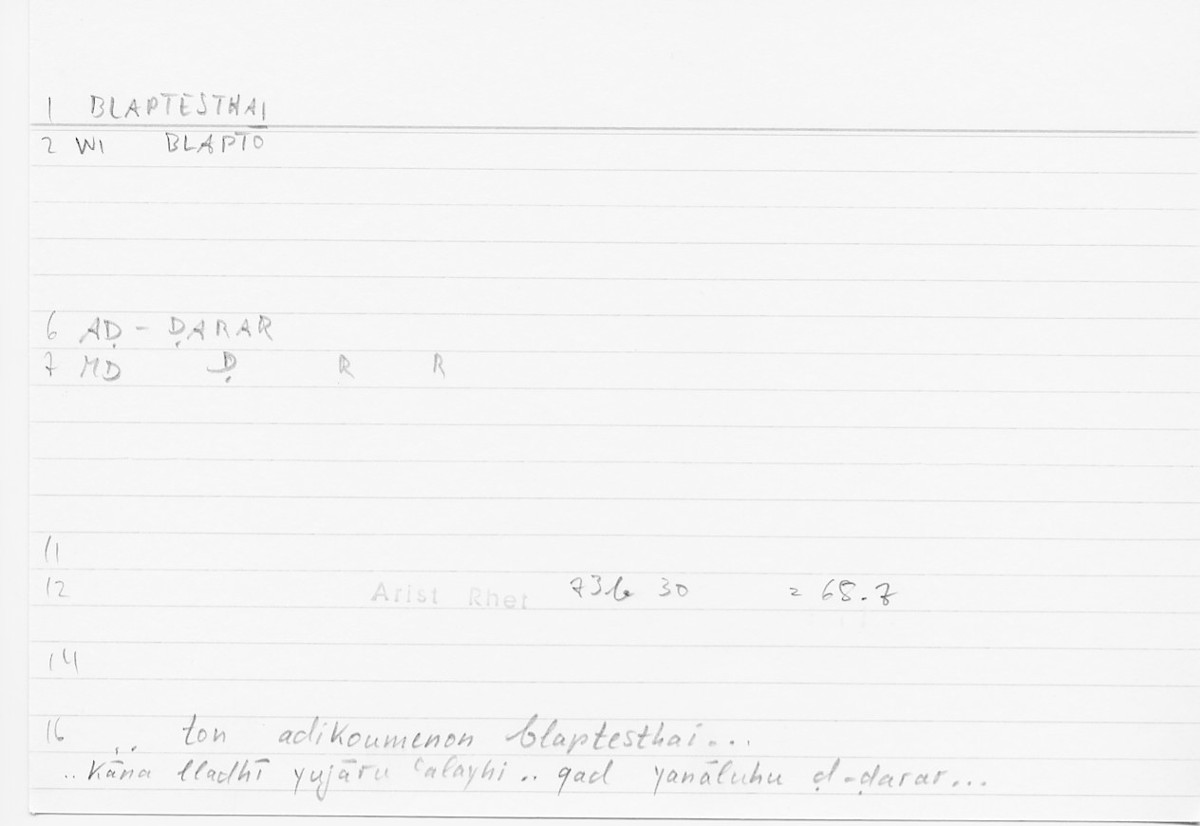 1 BLAPTESTHAI
2 WI BLAPTŌ
6 AḌ-ḌARAR
7 MD Ḍ R R
11
12 Arist Rhet 73b 30 = 68.7
14
16 .. ton adikoumenon blaptesthai...
.. kāna lladhī yujāru ʿalayhi .. qad yanāluhu ḍ-ḍarar...